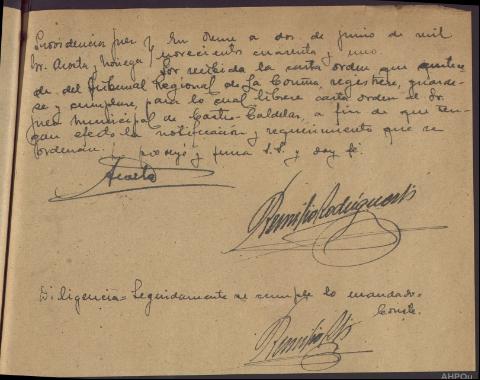 Providencia Juez } En Orense a dos de Junio de mil
Sr. Acosta y Noriega } novecientos cuarenta y uno.
Por recibida la carta orden que antece-
de, del Tribunal Regional de La Coruña, registrese, guarde-
se y cumplase, para lo cual librese carta orden al Sr.
Juez Municipal de Castro-Caldelas, a fin de que ten-
gan efecto la notificación y requerimiento que se
ordenan.
y firma S.S. y doy fé.
Acosta
Remilio Rodriguez
Diligencia = Seguidamente se cumple lo mandado =
Conste.
AHPOu